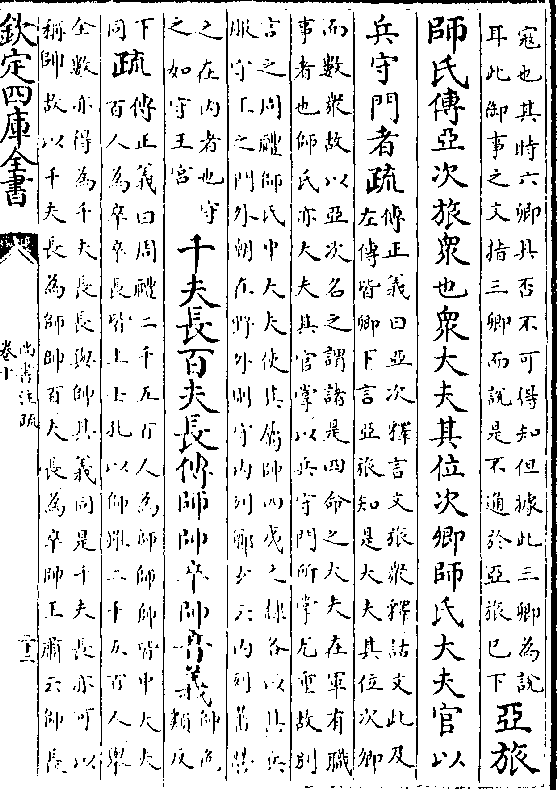 寇也其時六卿具否不可得知但據此三卿為說
耳此御事之文指三卿而說是不通於亞旅已下
亞旅
師氏傳亞次旅衆也衆大夫其位次卿師氏大夫官以
兵守門者疏
傳正義曰亞次釋言文旅衆釋詁文此及
左傳皆卿下言亞旅知是大夫其位次卿
而數衆故以亞次名之謂諸是四命之大夫在軍有職
事者也師氏亦大夫其官掌以兵守門所掌尤重故別
言之周禮師氏中大夫使其屬帥四夷之隸各以其兵
服守王之門外朝在野外則守內列鄭玄云內列蕃營
之在內者也守
之如守王宮
千夫長百夫長傳師帥卒帥音義
帥色
類反
下
同
疏
傳正義曰周禮二千五百人為師師帥皆中大夫
百人為卒卒長皆上士孔以師雖二千五百人舉
全數亦得為千夫長長與帥其義同是千夫長亦可以
稱帥故以千夫長為師帥百夫長為卒帥王肅云師長
欽定四庫全書
尚書注疏
卷十